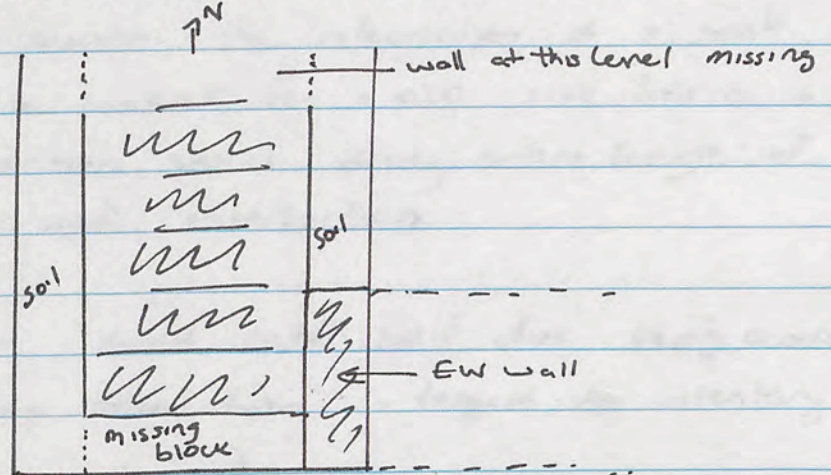 N
wall at this level missing
soil
soil
EW wall
missing
block